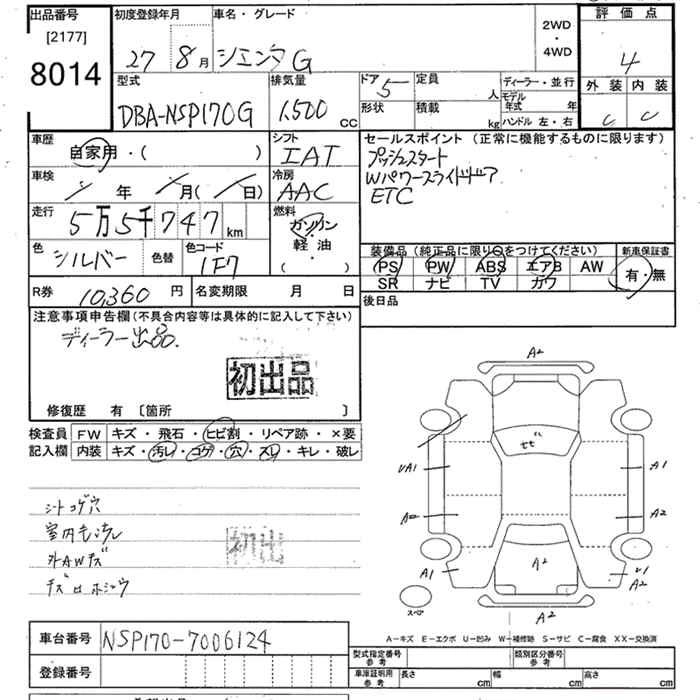 出品番号
[2177]
8014
初度登録年月
27 8月
車名・グレード
シエンタG
2WD
・
4WD
評価点
4
外装 内装
C C
型式
DBA-NSP170G
排気量
1,500 CC
ドア 5
定員 人
形状
積載 kg
ディーラー・並行
モデル年式 年
ハンドル 左・右
車歴
自家用・( )
シフト
IAT
車検
年 月( 日)
冷房
AAC
走行
5万5千747km
燃料
ガソリン
軽油
( )
色 シルバー 色替
色コード
1F7
R券 10,360円
名変期限 月 日
セールスポイント (正常に機能するものに限ります)
プッシュスタート
Wパワースライドドア
ETC
装備品 (純正品に限り○をつけてください)
PS PW ABS エアB AW
SR ナビ TV カワ
新車保証書
有・無
後日品
注意事項申告欄 (不具合内容等は具体的に記入して下さい)
ディーラー出品.
初出品
修復歴 有 [箇所 ]
検査員記入欄
FW キズ・飛石・ヒビ割・リペア跡・×要
内装 キズ・汚レ・コゲ・穴・スレ・キレ・破レ
シートコゲ穴
外AWキズ
初出
A2
A1
A2
A1
A2
A2
A2
スペア
A-キズ E-エクボ U-凹み W-補修跡 S-サビ C-腐食 XX-交換済
車台番号 NSP170-7006124
登録番号
型式指定番号
参考
類別区分番号
参考
車庫証明用
参考
長さ cm 幅 cm 高さ cm